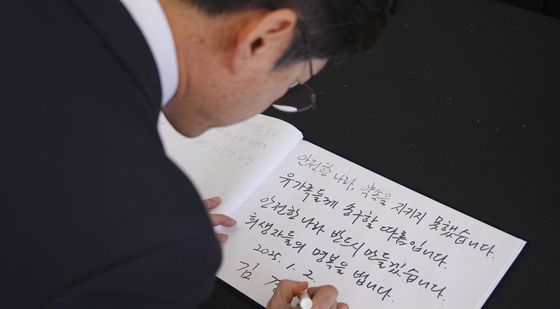 안전한 나라, 약속을 지키지 못했습니다.
유가족들께 송구할 따름입니다.
안전한 나라 반드시 만들겠습니다.
희생자들의 명복을 빕니다.
2025. 1. 2.
김